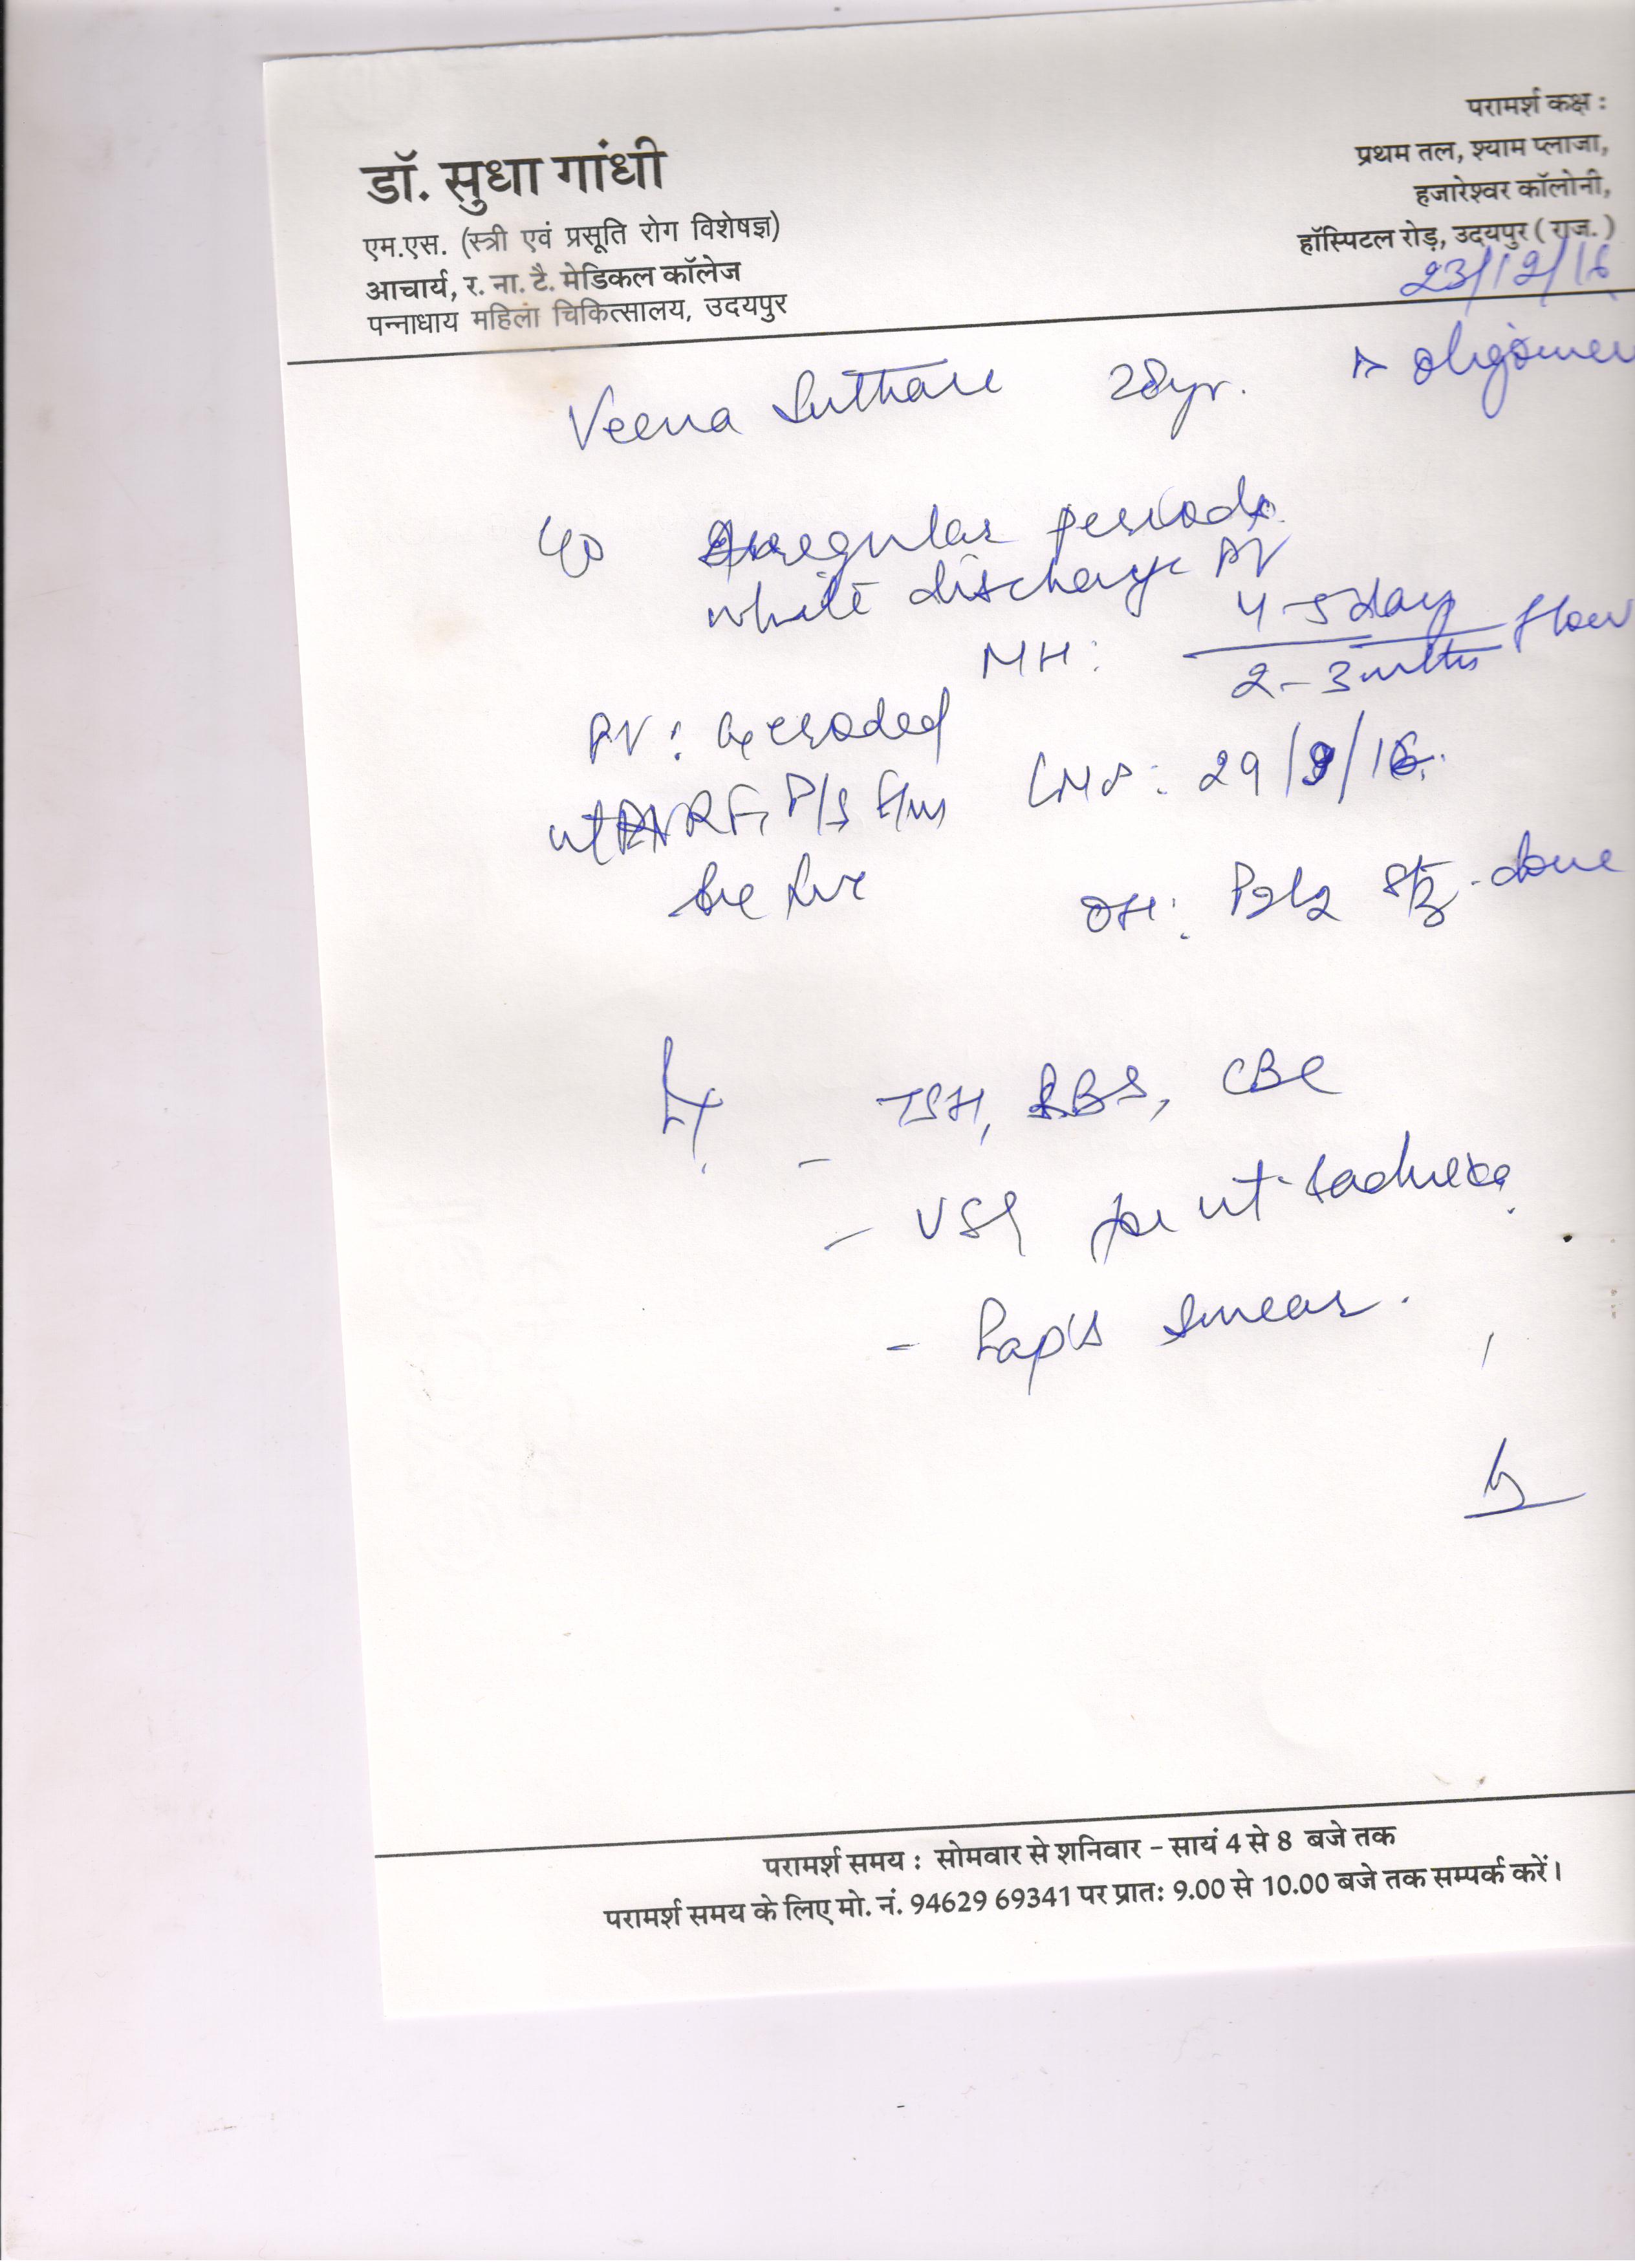 परामर्श कक्ष :
प्रथम तल, श्याम प्लाजा,
हजारेश्वर कॉलोनी,
हॉस्पिटल रोड़, उदयपुर ( राज. )
डॉ. सुधा गांधी
एम.एस. (स्त्री एवं प्रसूति रोग विशेषज्ञ)
आचार्य, र. ना. टै. मेडिकल कॉलेज
पन्नाधाय महिला चिकित्सालय, उदयपुर
23/12/16
Veena Suthar 28yr.
C/o Irregular periods
white discharge PV
MH: 4-5 day flow
2-3 mths
PV: Cx eroded
LMP: 29/9/16
OH: P2L2 - done
- TSH, RBS, CBC
- USG for ut
- Pap's smear.
परामर्श समय : सोमवार से शनिवार - सायं 4 से 8 बजे तक
परामर्श समय के लिए मो. नं. 94629 69341 पर प्रातः 9.00 से 10.00 बजे तक सम्पर्क करें।